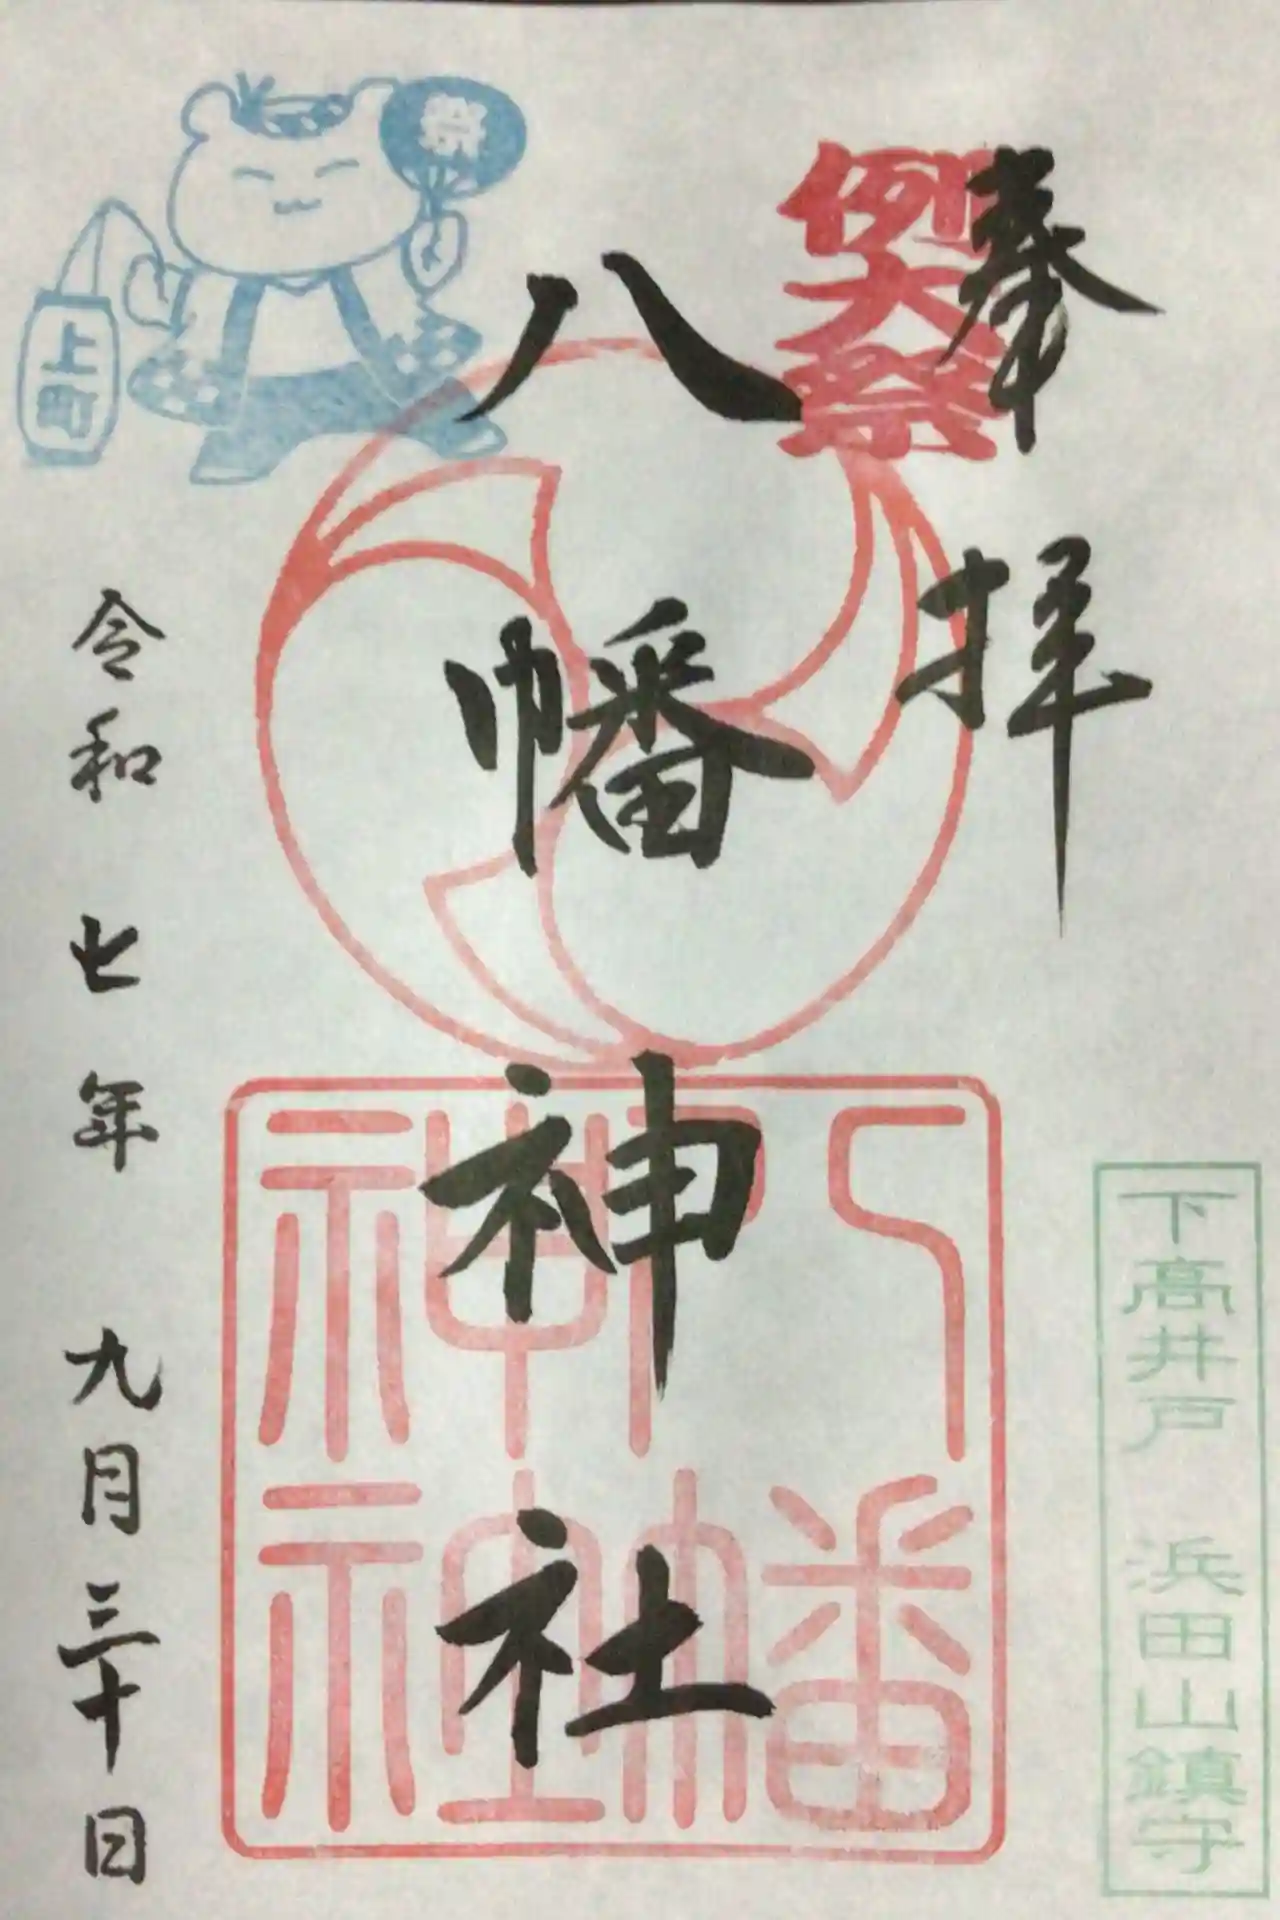 奉拝
例大祭
下高井戸 浜田山鎮守
八幡神社
八幡神社
祭
上町
令和七年九月三十日